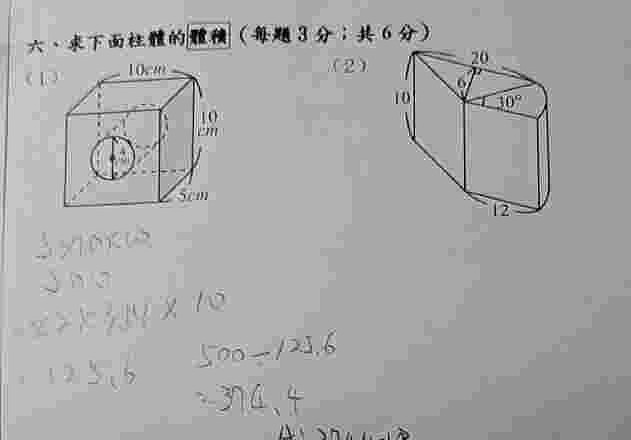 六、求下面柱體的體積（每題3分；共6分）
(1) 10cm 10 cm 5cm
(2) 20 6 10 30° 12
5×10×10
500
×2×3.14×10
=125.6
500-125.6
=374.4